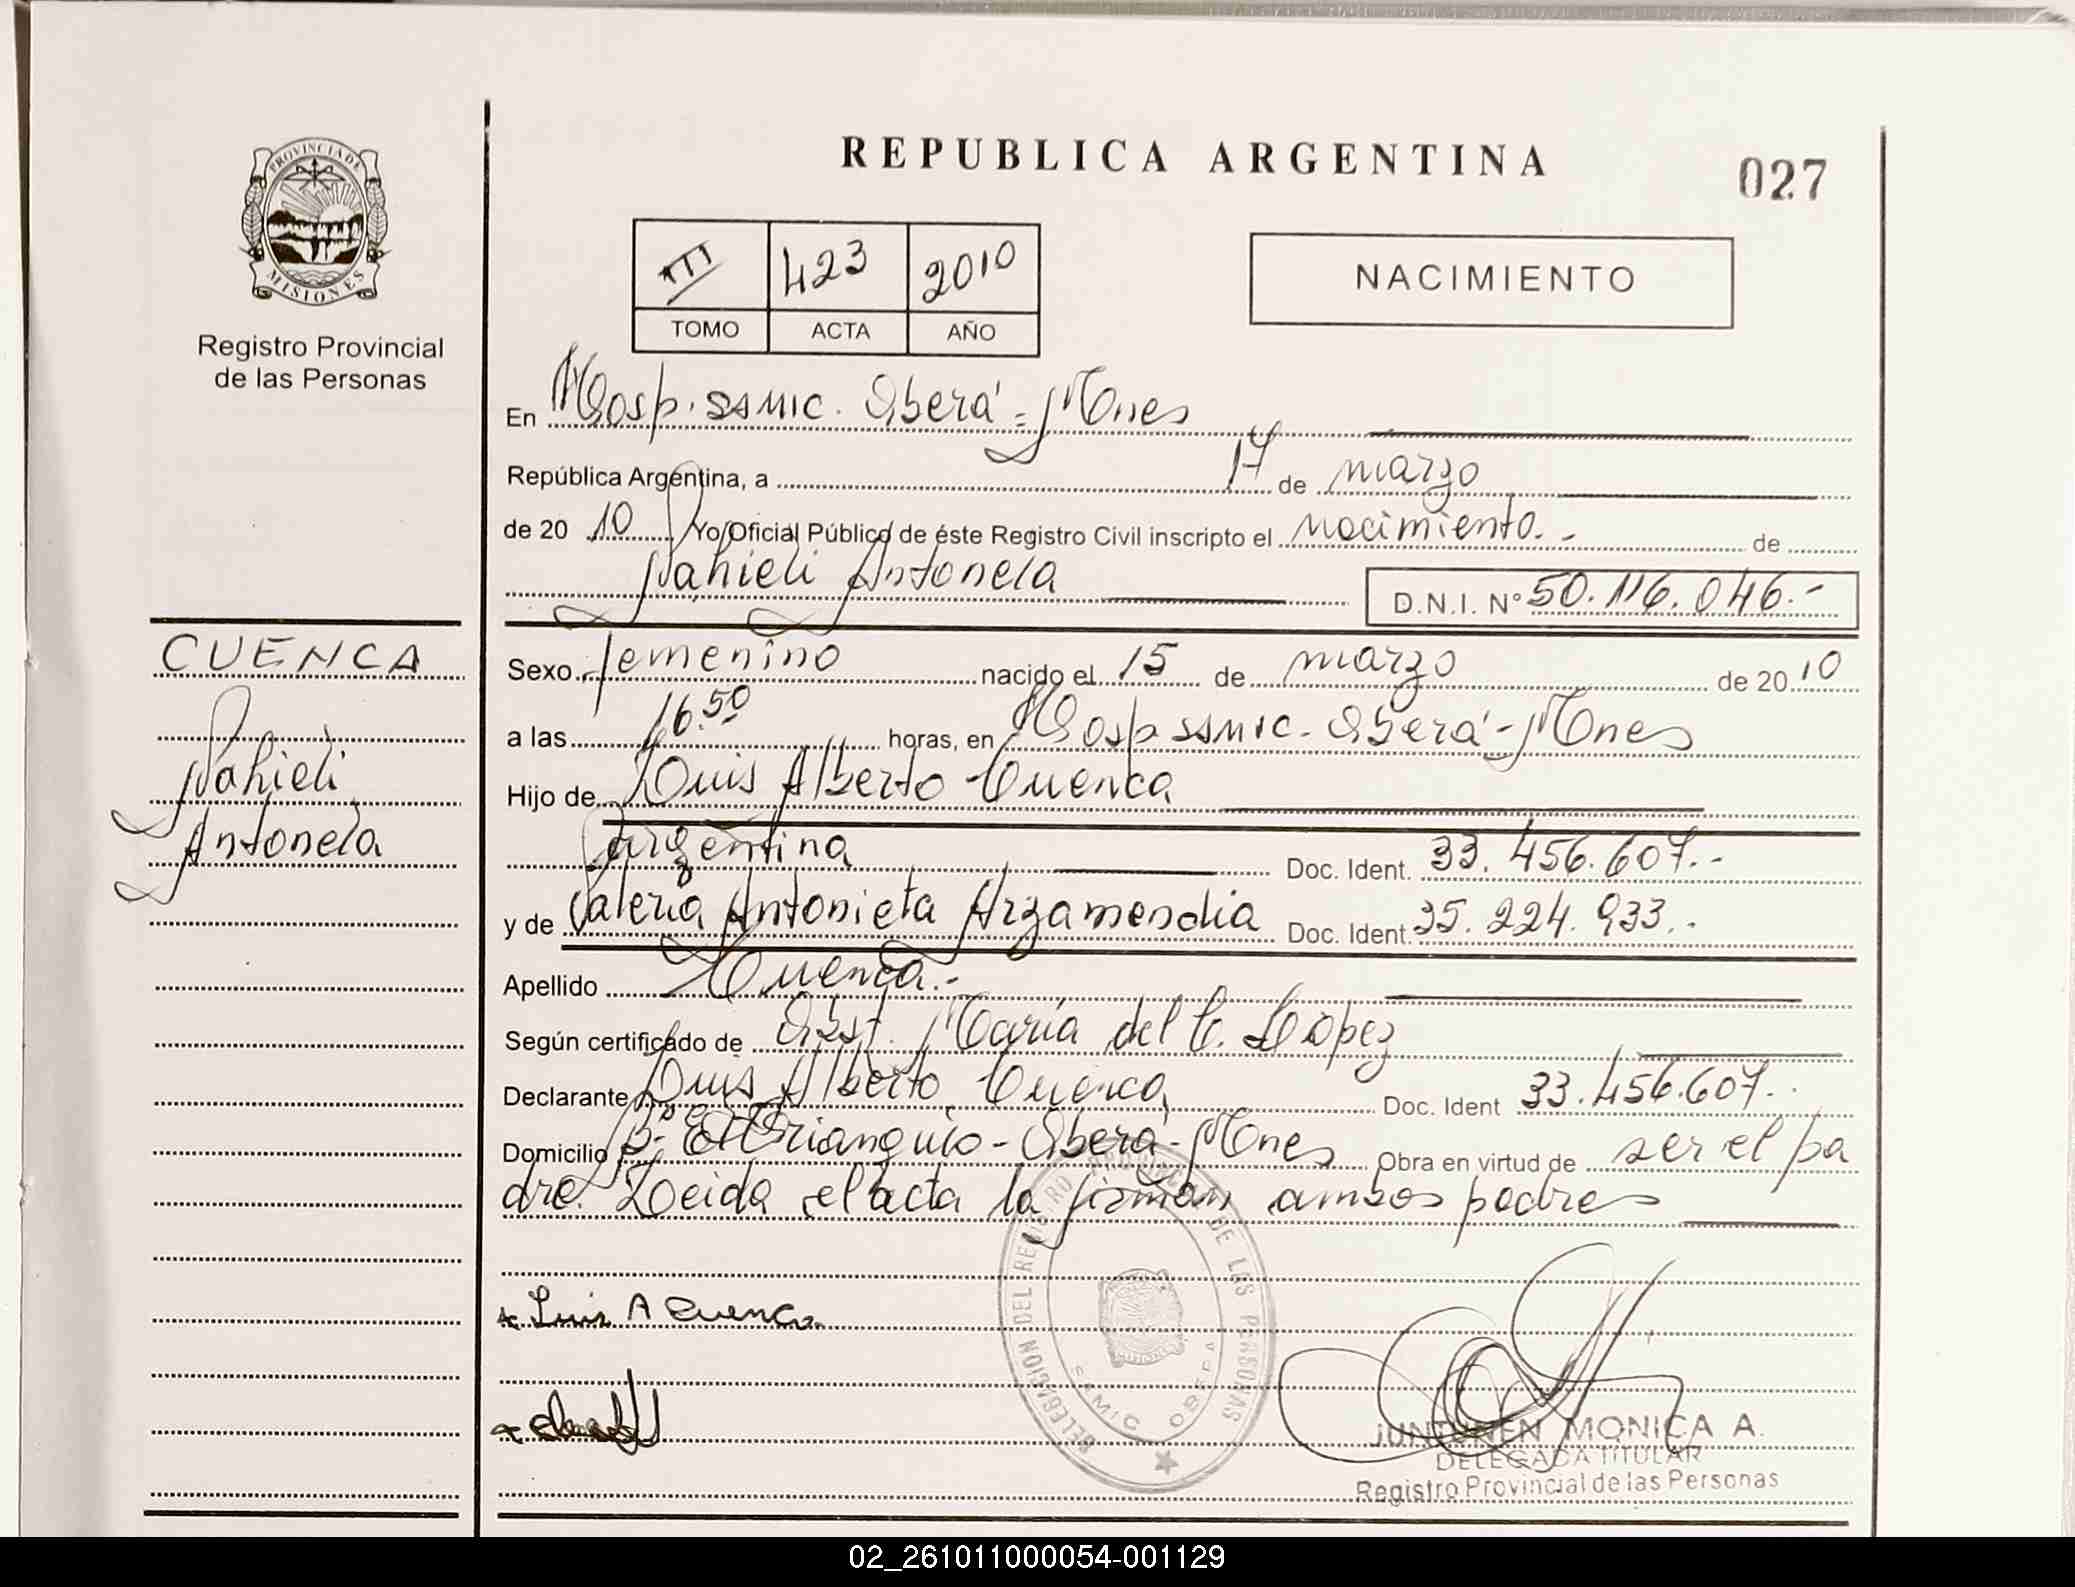 REPUBLICA ARGENTINA
027
PROVINCIA DE
MISIONES
Registro Provincial
de las Personas
III 423 2010
TOMO ACTA AÑO
NACIMIENTO
En Hosp. SAMIC. Oberá - Mnes
República Argentina, a 17 de marzo
de 20 10 Yo Oficial Público de éste Registro Civil inscripto el Nacimiento.- de
Nahieli Antonela D.N.I. Nº 50.116.046.-
CUENCA
Nahieli
Antonela
Sexo femenino nacido el 15 de marzo de 20 10
a las 16.50 horas, en Hosp SAMIC - Oberá - Mnes
Hijo de Luis Alberto Cuenca
Argentina Doc. Ident. 33.456.607.-
y de Valeria Antonieta Arzamendia Doc. Ident. 35.224.933.-
Apellido Cuenca.-
Según certificado de Obst. María del C. López
Declarante Luis Alberto Cuenca Doc. Ident 33.456.607.-
Domicilio Bº El Triangulo - Oberá - Mnes Obra en virtud de ser el pa
dre. Leida el acta la firman ambos padres
Luis A Cuenca
DELEGACION DEL REGISTRO PROVINCIAL DE LAS PERSONAS
SAMIC OBERA
JUNTUNEN MONICA A.
DELEGADA TITULAR
Registro Provincial de las Personas
02_261011000054-001129